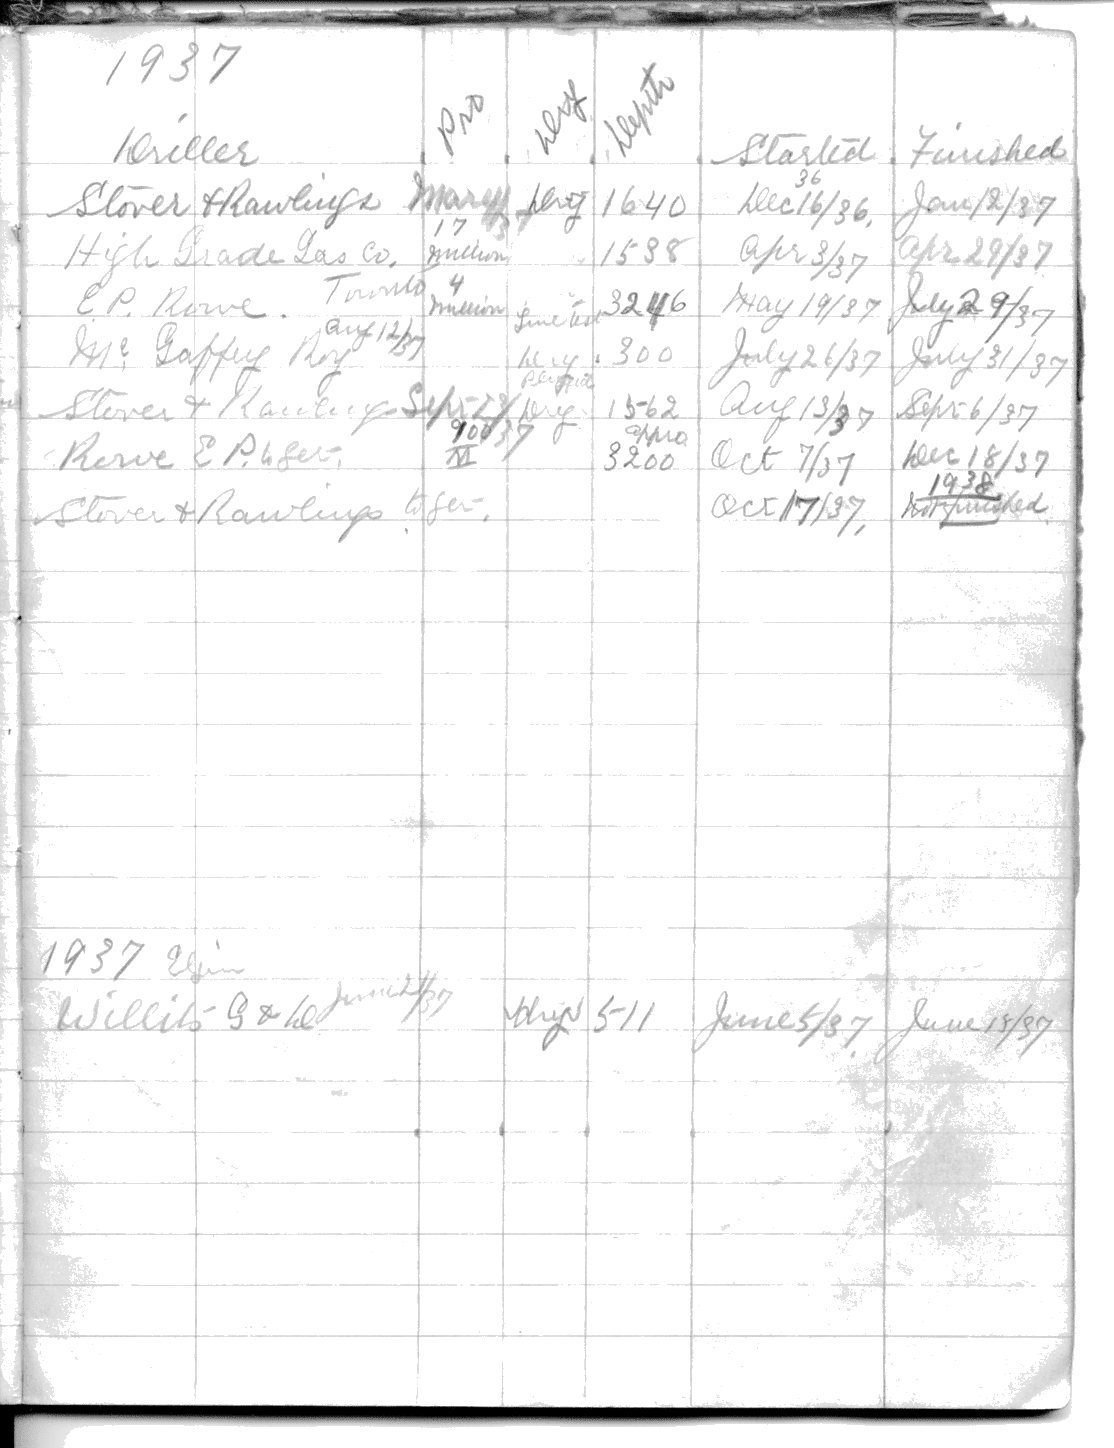 1937
Driller Pro Dry Depth Started Finished
Stover & Rawlings Mar Dry 1640 Dec 16/36. Jan 12/37
36
High Grade Gas Co. 17 million 1538 Apr 3/37 Apr 29/37
E.P. Rowe. Toronto 4 million 3246 May 19/37 July 29/37
Mc Gaffey Roy Aug 12/37 Dry 300 July 26/37 July 31/37
Stover & Rawlings Sept Dry 1562 Aug 13/37 Sept 6/37
Rowe E.P. 900 M appro 3200 Oct 7/37 Dec 18/37
Stover & Rawlings Oct 17/37, 1938 Not finished
1937 Elgin
Willits G & D June 21/37 511 June 5/37 June 15/37